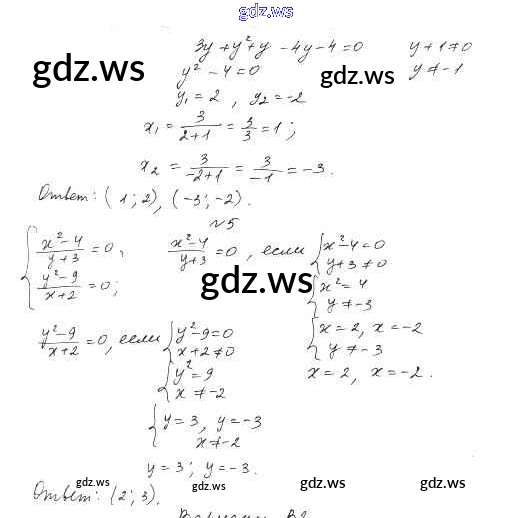 gdz.ws
3y + y² + y - 4y - 4 = 0   y + 1 ≠ 0
gdz.ws   y² - 4 = 0   gdz.ws   y ≠ -1
y₁ = 2, y₂ = -2
x₁ = 3/(2+1) = 3/3 = 1;
x₂ = 3/(-2+1) = 3/(-1) = -3.
Ответ: (1; 2), (-3; -2).
№5
{ (x²-4)/(y+3) = 0,   (x²-4)/(y+3) = 0, если { x²-4=0
(y²-9)/(x+2) = 0;   y+3 ≠ 0
gdz.ws   { x² = 4
y ≠ -3
(y²-9)/(x+2) = 0, если { y²-9=0   { x = 2, x = -2
x+2 ≠ 0   y ≠ -3
{ y² = 9   x = 2, x = -2.
x ≠ -2
{ y = 3, y = -3
x ≠ -2
y = 3; y = -3.
gdz.ws gdz.ws gdz.ws gdz.ws
Ответ: (2; 3).